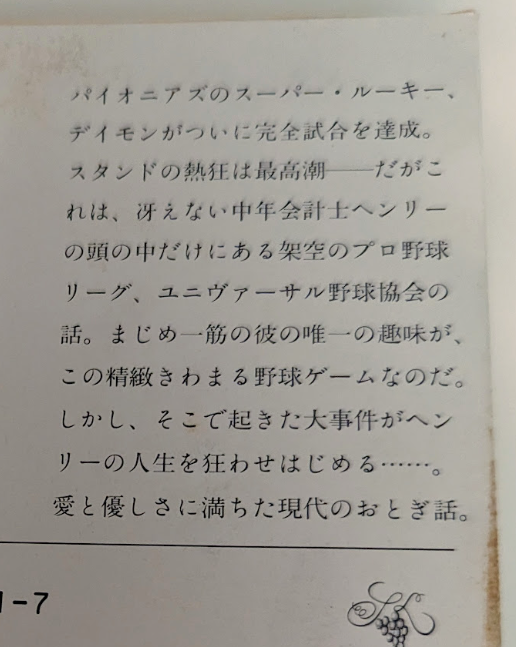 パイオニアズのスーパー・ルーキー、
デイモンがついに完全試合を達成。
スタンドの熱狂は最高潮──だがこ
れは、冴えない中年会計士ヘンリー
の頭の中だけにある架空のプロ野球
リーグ、ユニヴァーサル野球協会の
話。まじめ一筋の彼の唯一の趣味が、
この精緻きわまる野球ゲームなのだ。
しかし、そこで起きた大事件がヘン
リーの人生を狂わせはじめる……。
愛と優しさに満ちた現代のおとぎ話。
1-7